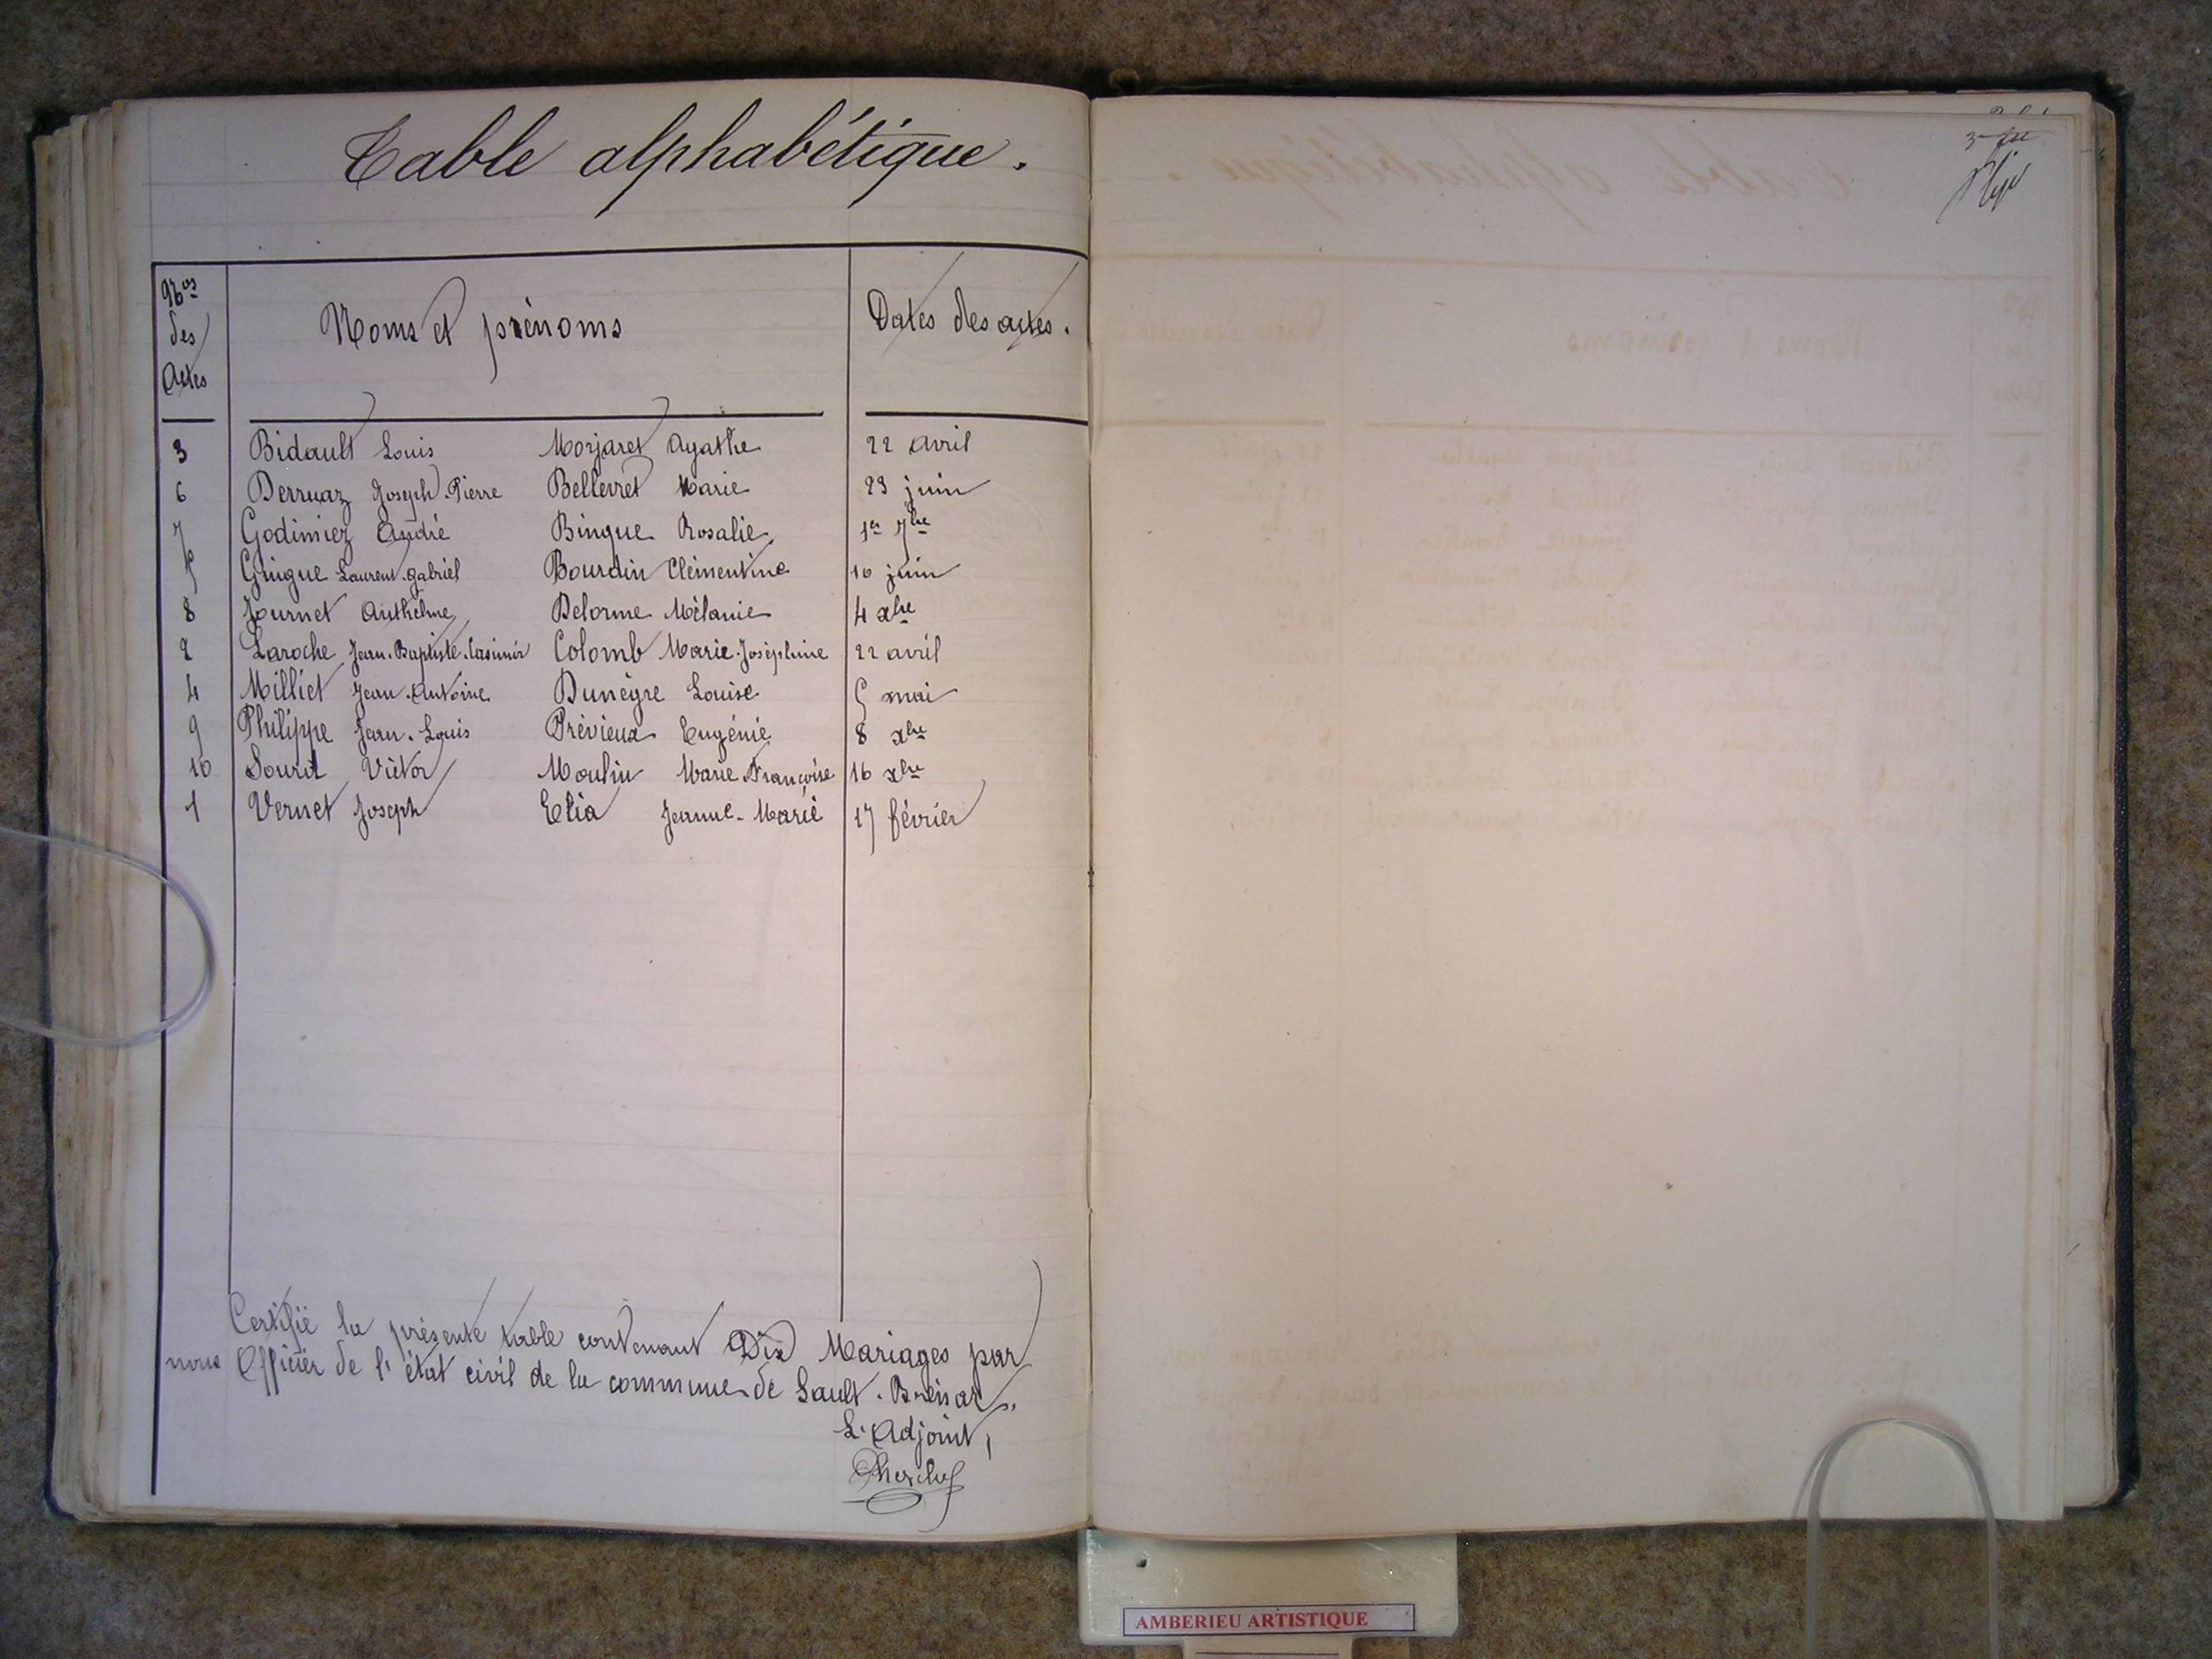 Table alphabétique.
Nos des Actes
Noms et prénoms
Dates des actes.
3 Bidault Louis Morjaret Agathe 22 avril
6 Derruaz Joseph-Pierre Bellevret Marie 23 juin
7 Godimiez André Bingue Rosalie 1er 7bre
5 Gringue Laurent-Gabriel Bourdin Clémentine 10 juin
8 Journet Anthelme Delorme Mélanie 4 xbre
2 Laroche Jean-Baptiste-Casimir Colomb Marie-Joséphine 22 avril
4 Milliet Jean-Antoine Dunègre Louise 5 mai
9 Philippe Jean-Louis Prévieux Eugénie 8 xbre
10 Sourd Victor Moulin Marie Françoise 16 xbre
1 Vernet Joseph Elia Jeanne-Marie 17 février
Certifié la présente table contenant Dix Mariages par
nous Officier de l'état civil de la commune de Sault-Brénaz.
L'Adjoint,
AMBERIEU ARTISTIQUE